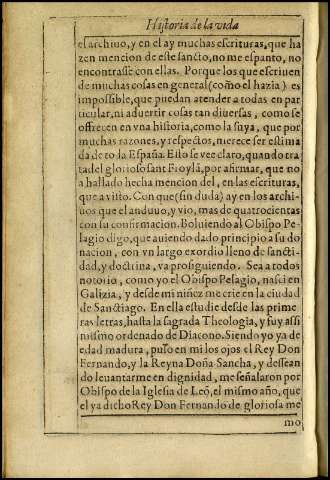 Historia de la vida
el archiuo, y en el ay muchas escrituras, que ha
zen mencion de este sancto, no me espanto, no
encontrasse con ellas. Porque los que escriuen
de muchas cosas en general (como el hazia) es
impossible, que puedan atender a todas en par
ticular, ni aduertir cosas tan diuersas, como se
offrecen en vna historia, como la suya, que por
muchas razones, y respectos, merece ser estima
da de toda España. Esto se vee claro, quando tra
ta del glorioso sant Froylã, por afirmar, que no
a hallado hecha mencion del, en las escrituras,
que a visto. Con que (sin duda) ay en los archi-
uos que el anduuo, y vio, mas de quatrocientas
con su confirmacion. Boluiendo al Obispo Pe-
lagio digo, que auiendo dado principio a su do
nacion, con vn largo exordio lleno de sancti-
dad, y doctrina, va prosiguiendo. Sea a todos
notorio, como yo el Obispo Pelagio, nasci en
Galizia, y desde mi niñez me crie en la ciudad
de Sanctiago. En ella estudie desde las prime
ras letras, hasta la sagrada Theologia, y fuy assi
mismo ordenado de Diacono. Siendo yo ya de
edad madura, puso en mi los ojos el Rey Don
Fernando, y la Reyna Doña Sancha, y dessean
do leuantarme en dignidad, me señalaron por
Obispo de la Iglesia de Leõ, el mismo año, que
el ya dicho Rey Don Fernando de gloriosa me
mo